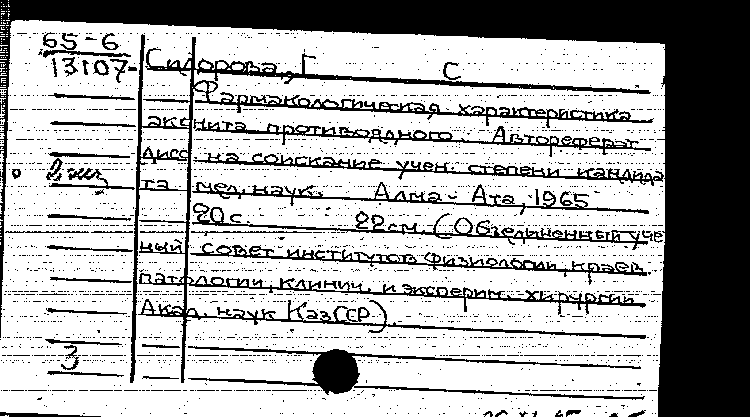 65-6
13107-
Сидорова, Г С
Фармакологическая характеристика
аконита противоядного. Автореферат
дисс на соискание учен. степени кандида
та мед. наук. Алма-Ата, 1965
20 с. 22 см. (Объединенный уче
ный совет институтов физиологии, краев.
патологии, клинич. и эксперим. хирургии
Акад. наук КазССР).
3